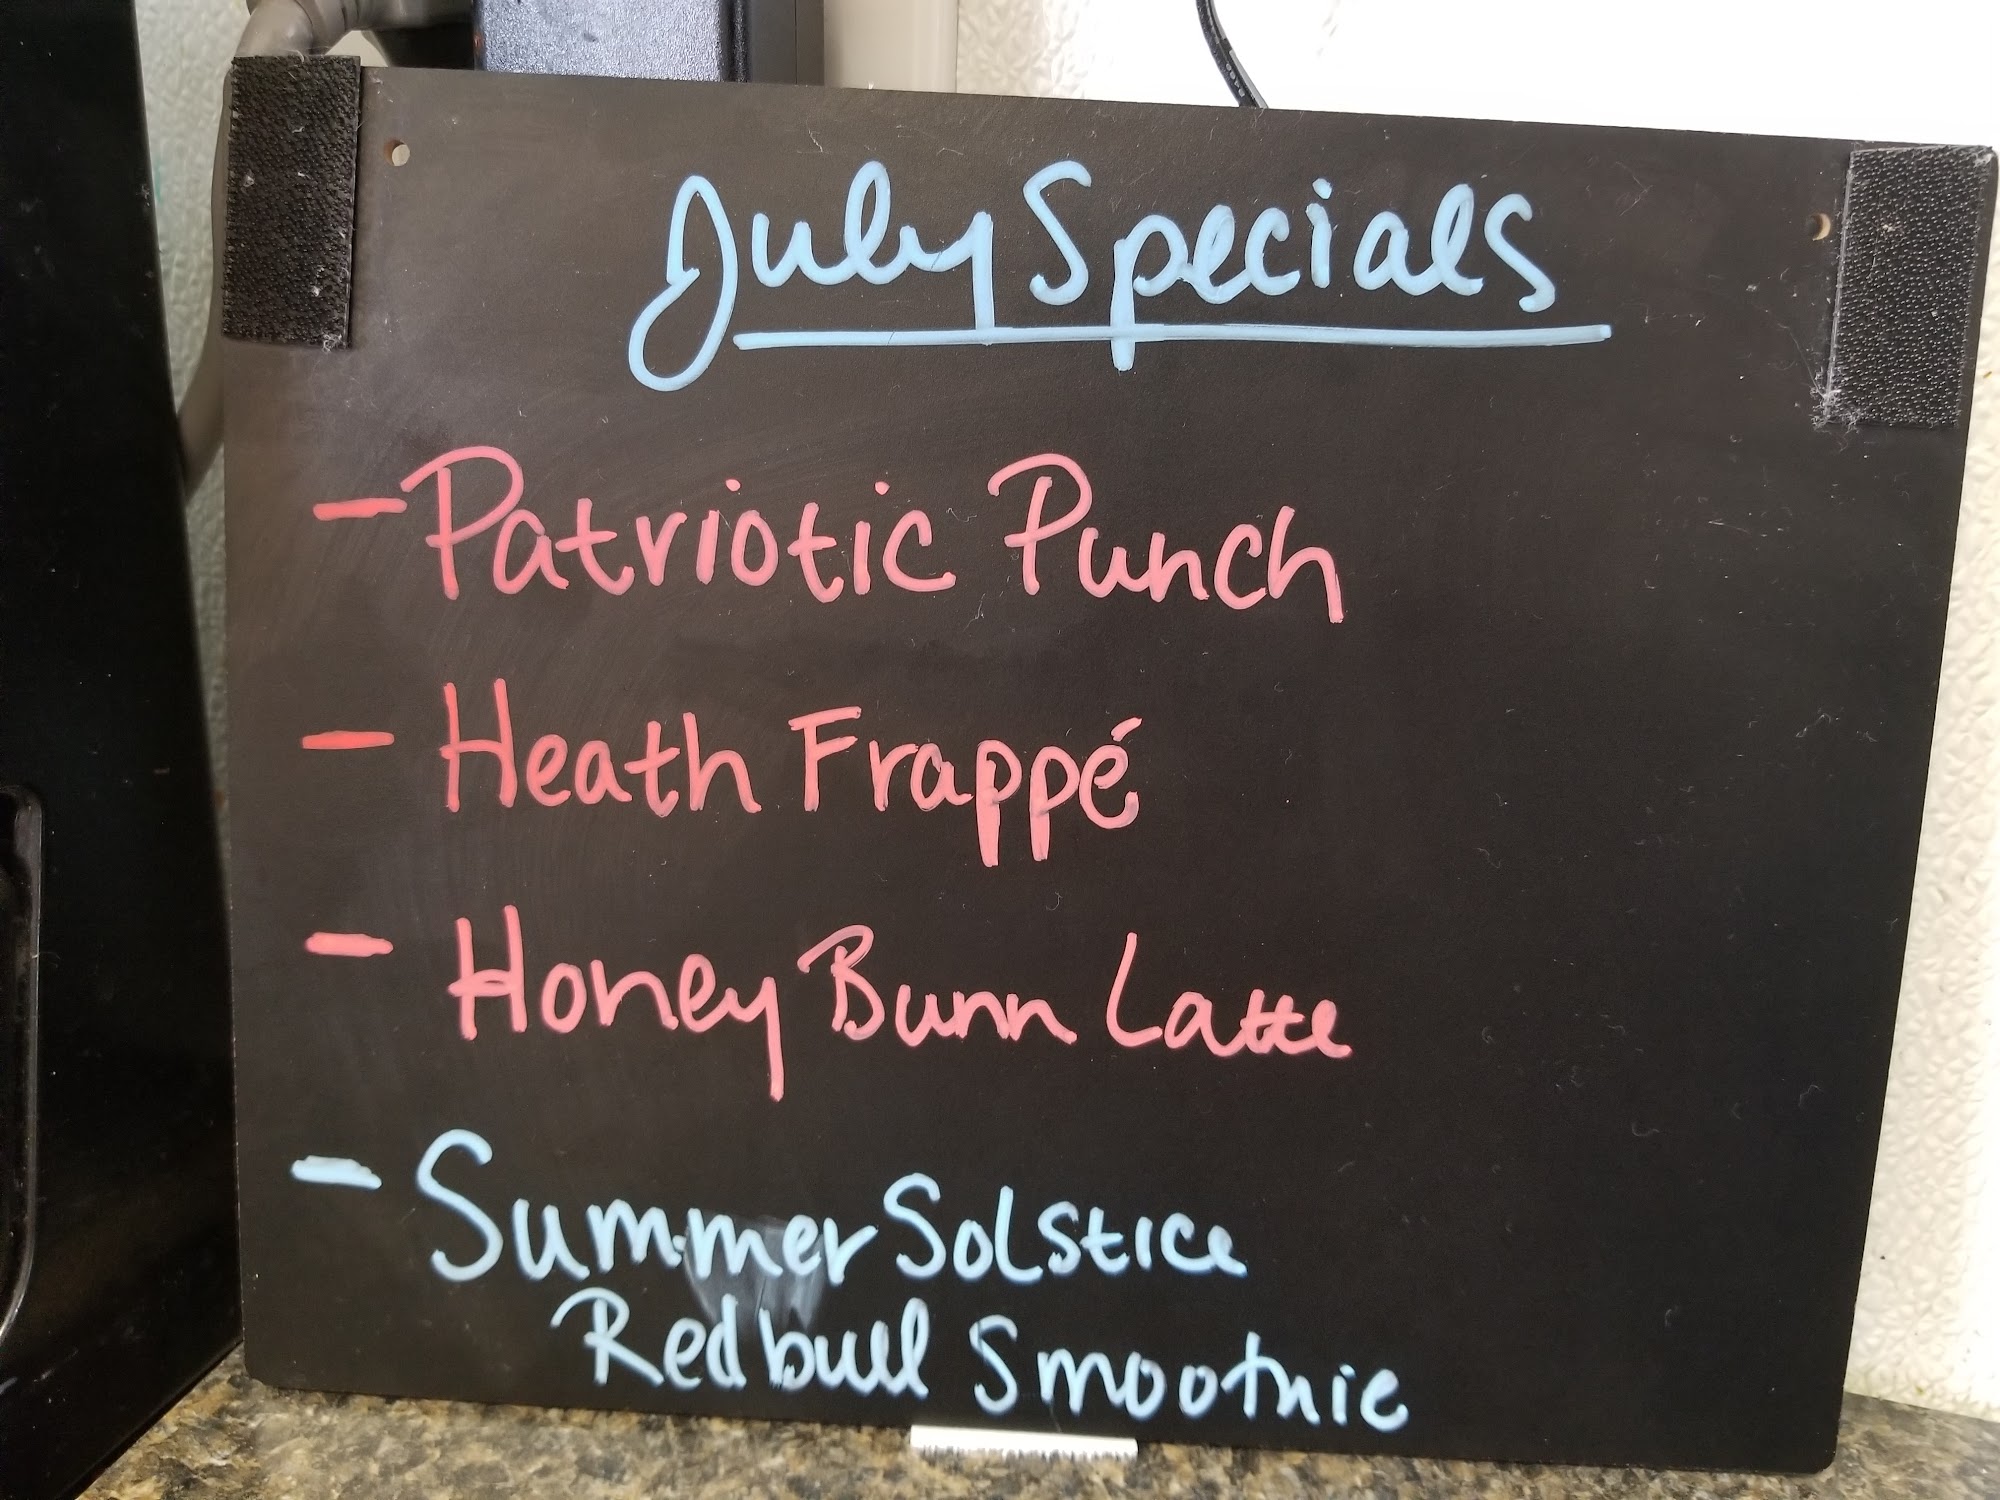 July Specials
- Patriotic Punch
- Heath Frappé
- Honey Bunn Latte
- Summer Solstice
Redbull Smoothie